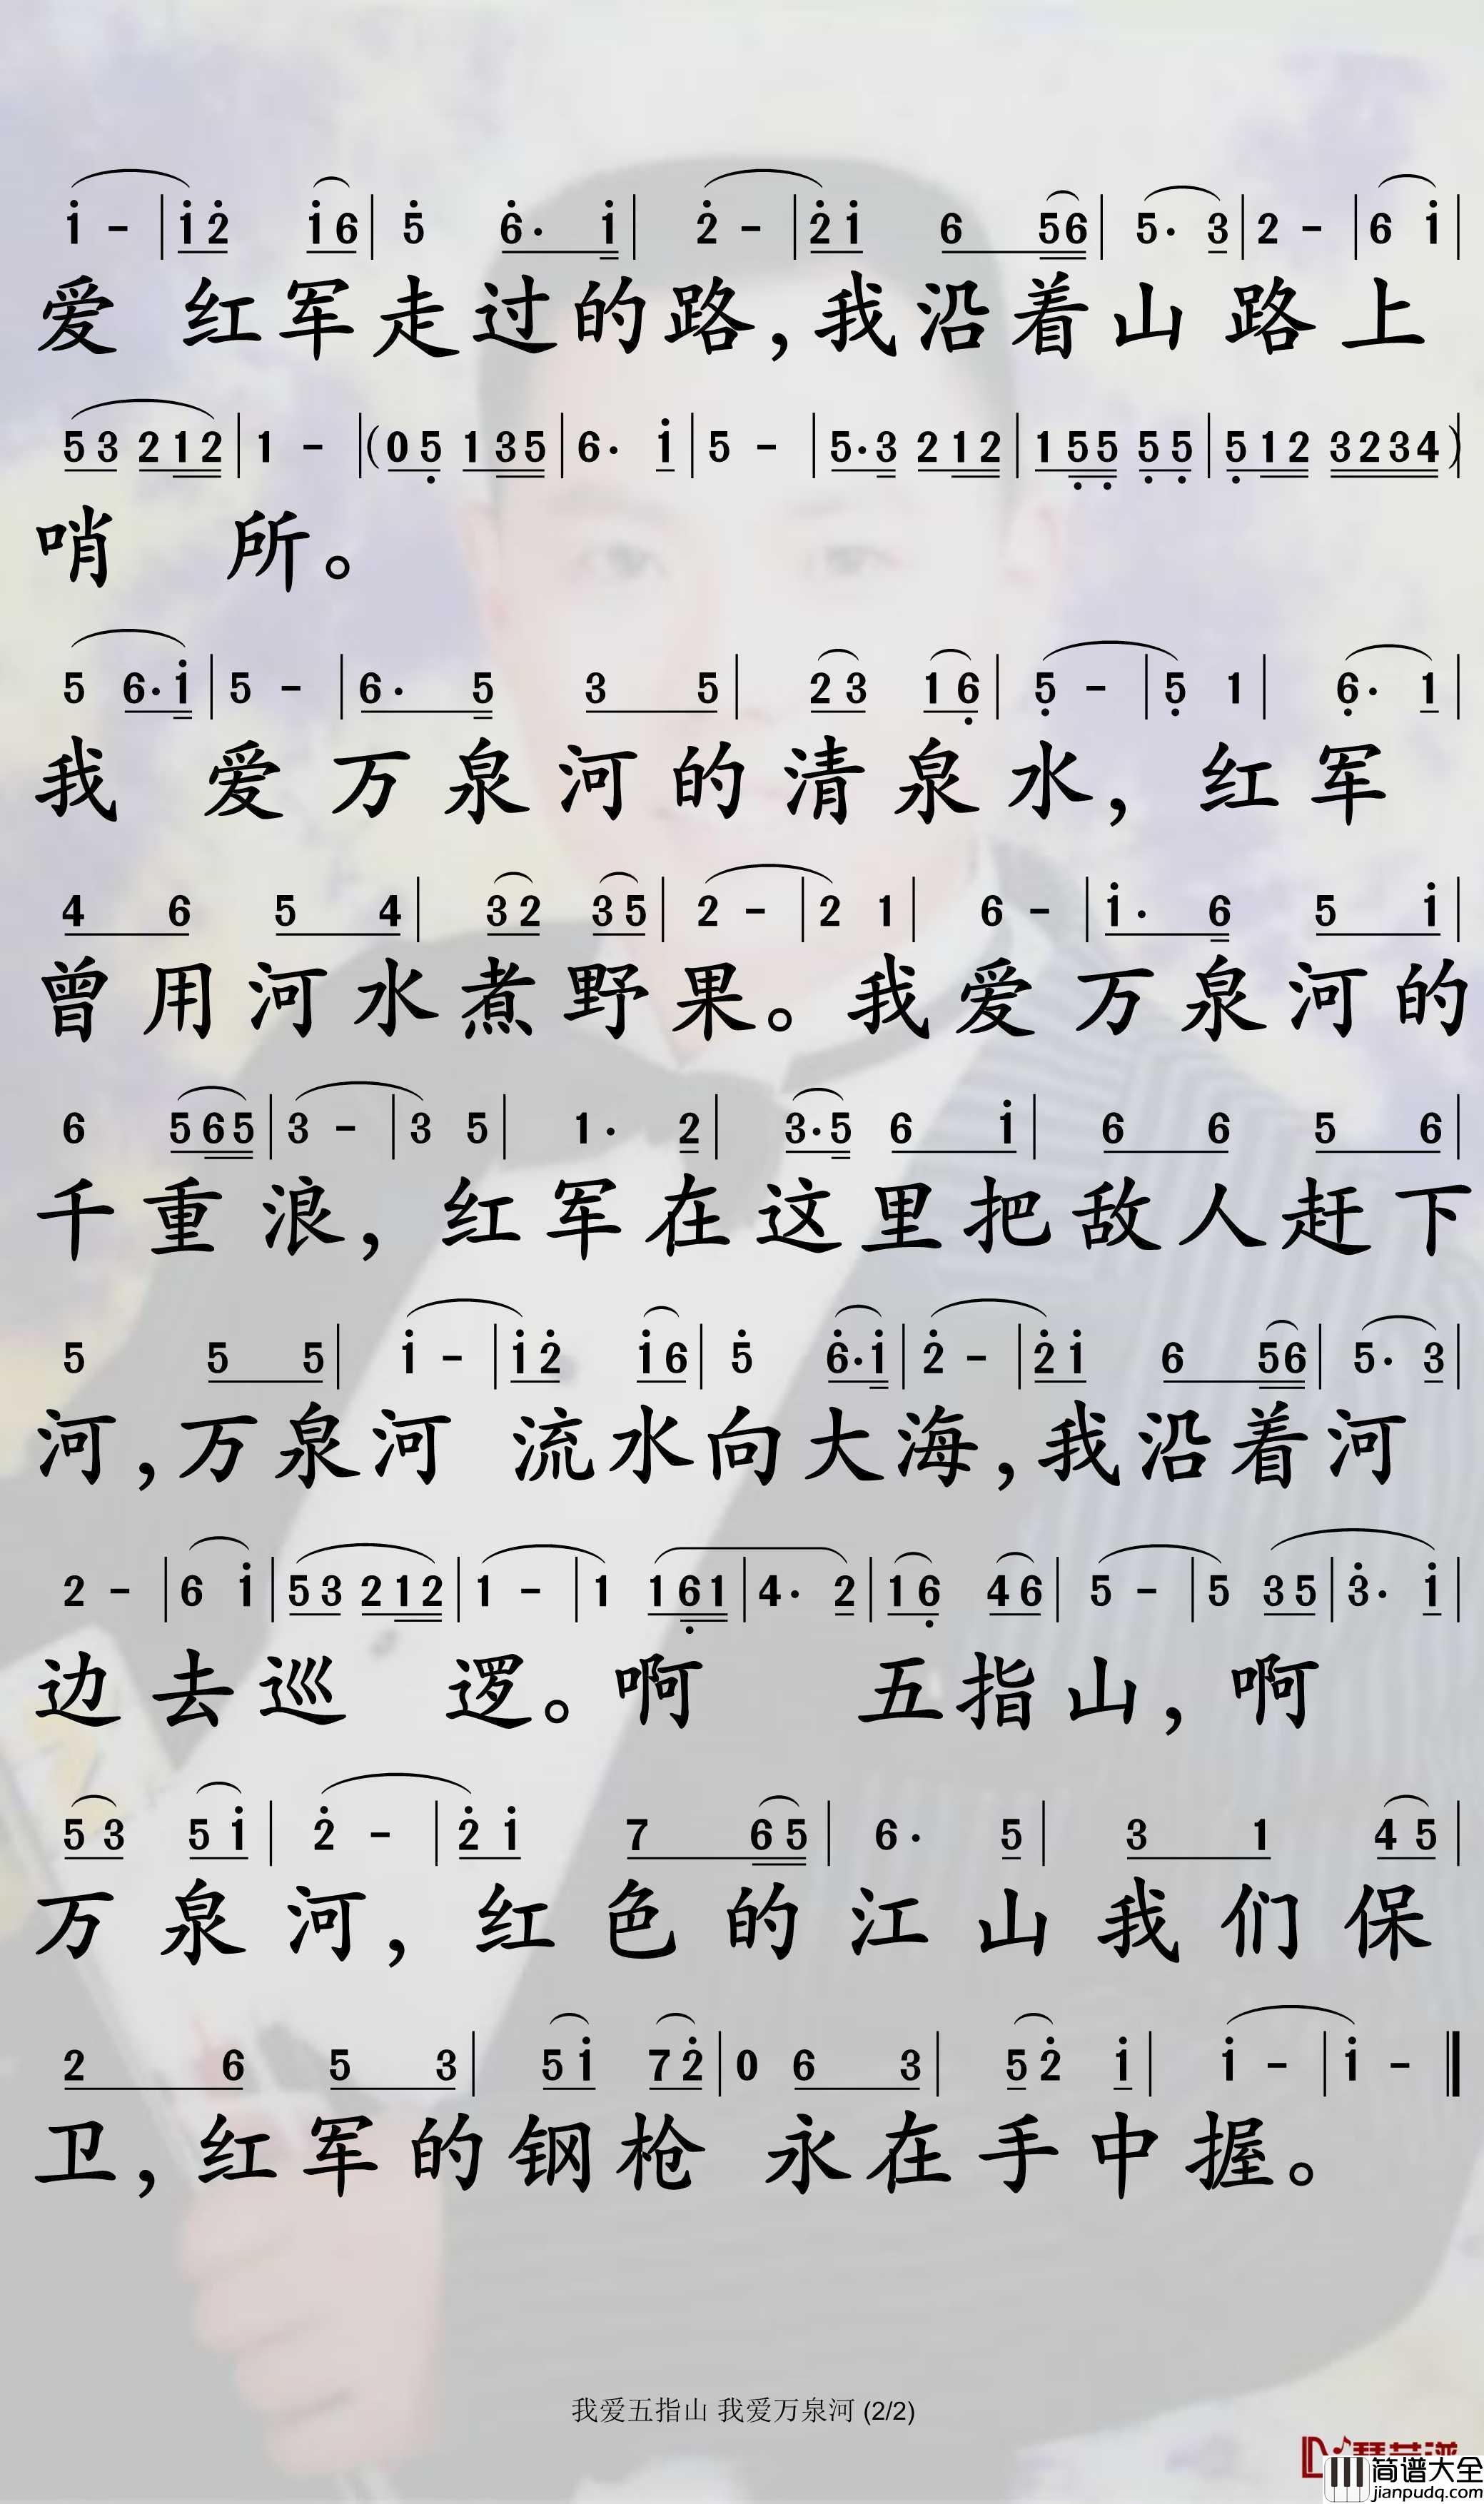 i - | i 2 i 6 | 5 6· i | 2 - | 2 i 6 5 6 | 5· 3 | 2 - | 6 i |
爱 红军走过的路,我沿着山路上
5 3 2 1 2 | 1 - | (0 5 1 3 5 | 6· i | 5 - | 5·3 2 1 2 | 1 5 5 5 5 | 5 1 2 3 2 3 4) |
哨 所。
5 6·i | 5 - | 6· 5 3 5 | 2 3 1 6 | 5 - | 5 1 | 6· 1 |
我 爱万泉河的清泉水,红军
4 6 5 4 | 3 2 3 5 | 2 - | 2 1 | 6 - | i· 6 5 i |
曾用河水煮野果。我爱万泉河的
6 5 6 5 | 3 - | 3 5 | 1· 2 | 3·5 6 i | 6 6 5 6 |
千重浪,红军在这里把敌人赶下
5 5 5 | i - | i 2 i 6 | 5 6·i | 2 - | 2 i 6 5 6 | 5· 3 |
河,万泉河 流水向大海,我沿着河
2 - | 6 i | 5 3 2 1 2 | 1 - | 1 1 6 1 | 4· 2 | 1 6 4 6 | 5 - | 5 3 5 | 3· i |
边去巡 逻。啊 五指山,啊
5 3 5 i | 2 - | 2 i 7 6 5 | 6· 5 | 3 1 4 5 |
万泉河,红色的江山我们保
2 6 5 3 | 5 i 7 2 | 0 6 3 | 5 2 i | i - | i - ‖
卫,红军的钢枪 永在手中握。
我爱五指山 我爱万泉河 (2/2)
简谱大全
jianpudq.com